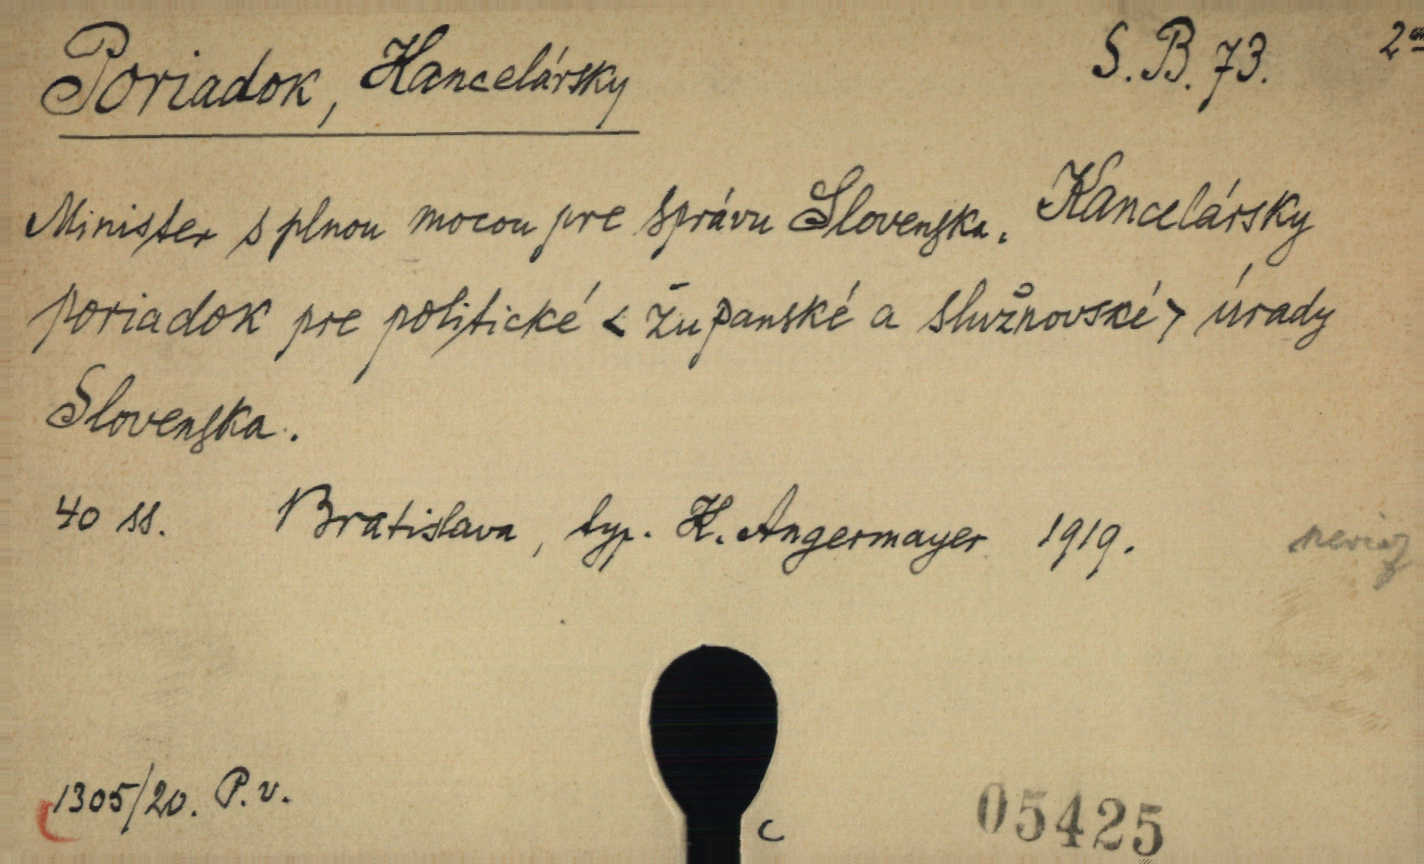 Poriadok, Kancelársky S. B. 73.
Minister s plnou mocou pre správu Slovenska. Kancelársky
poriadok pre politické <županské a slúžnovské> úrady
Slovenska.
40 ss. Bratislava, typ. K. Angermayer 1919.
1305/20. P. v.
c
05425